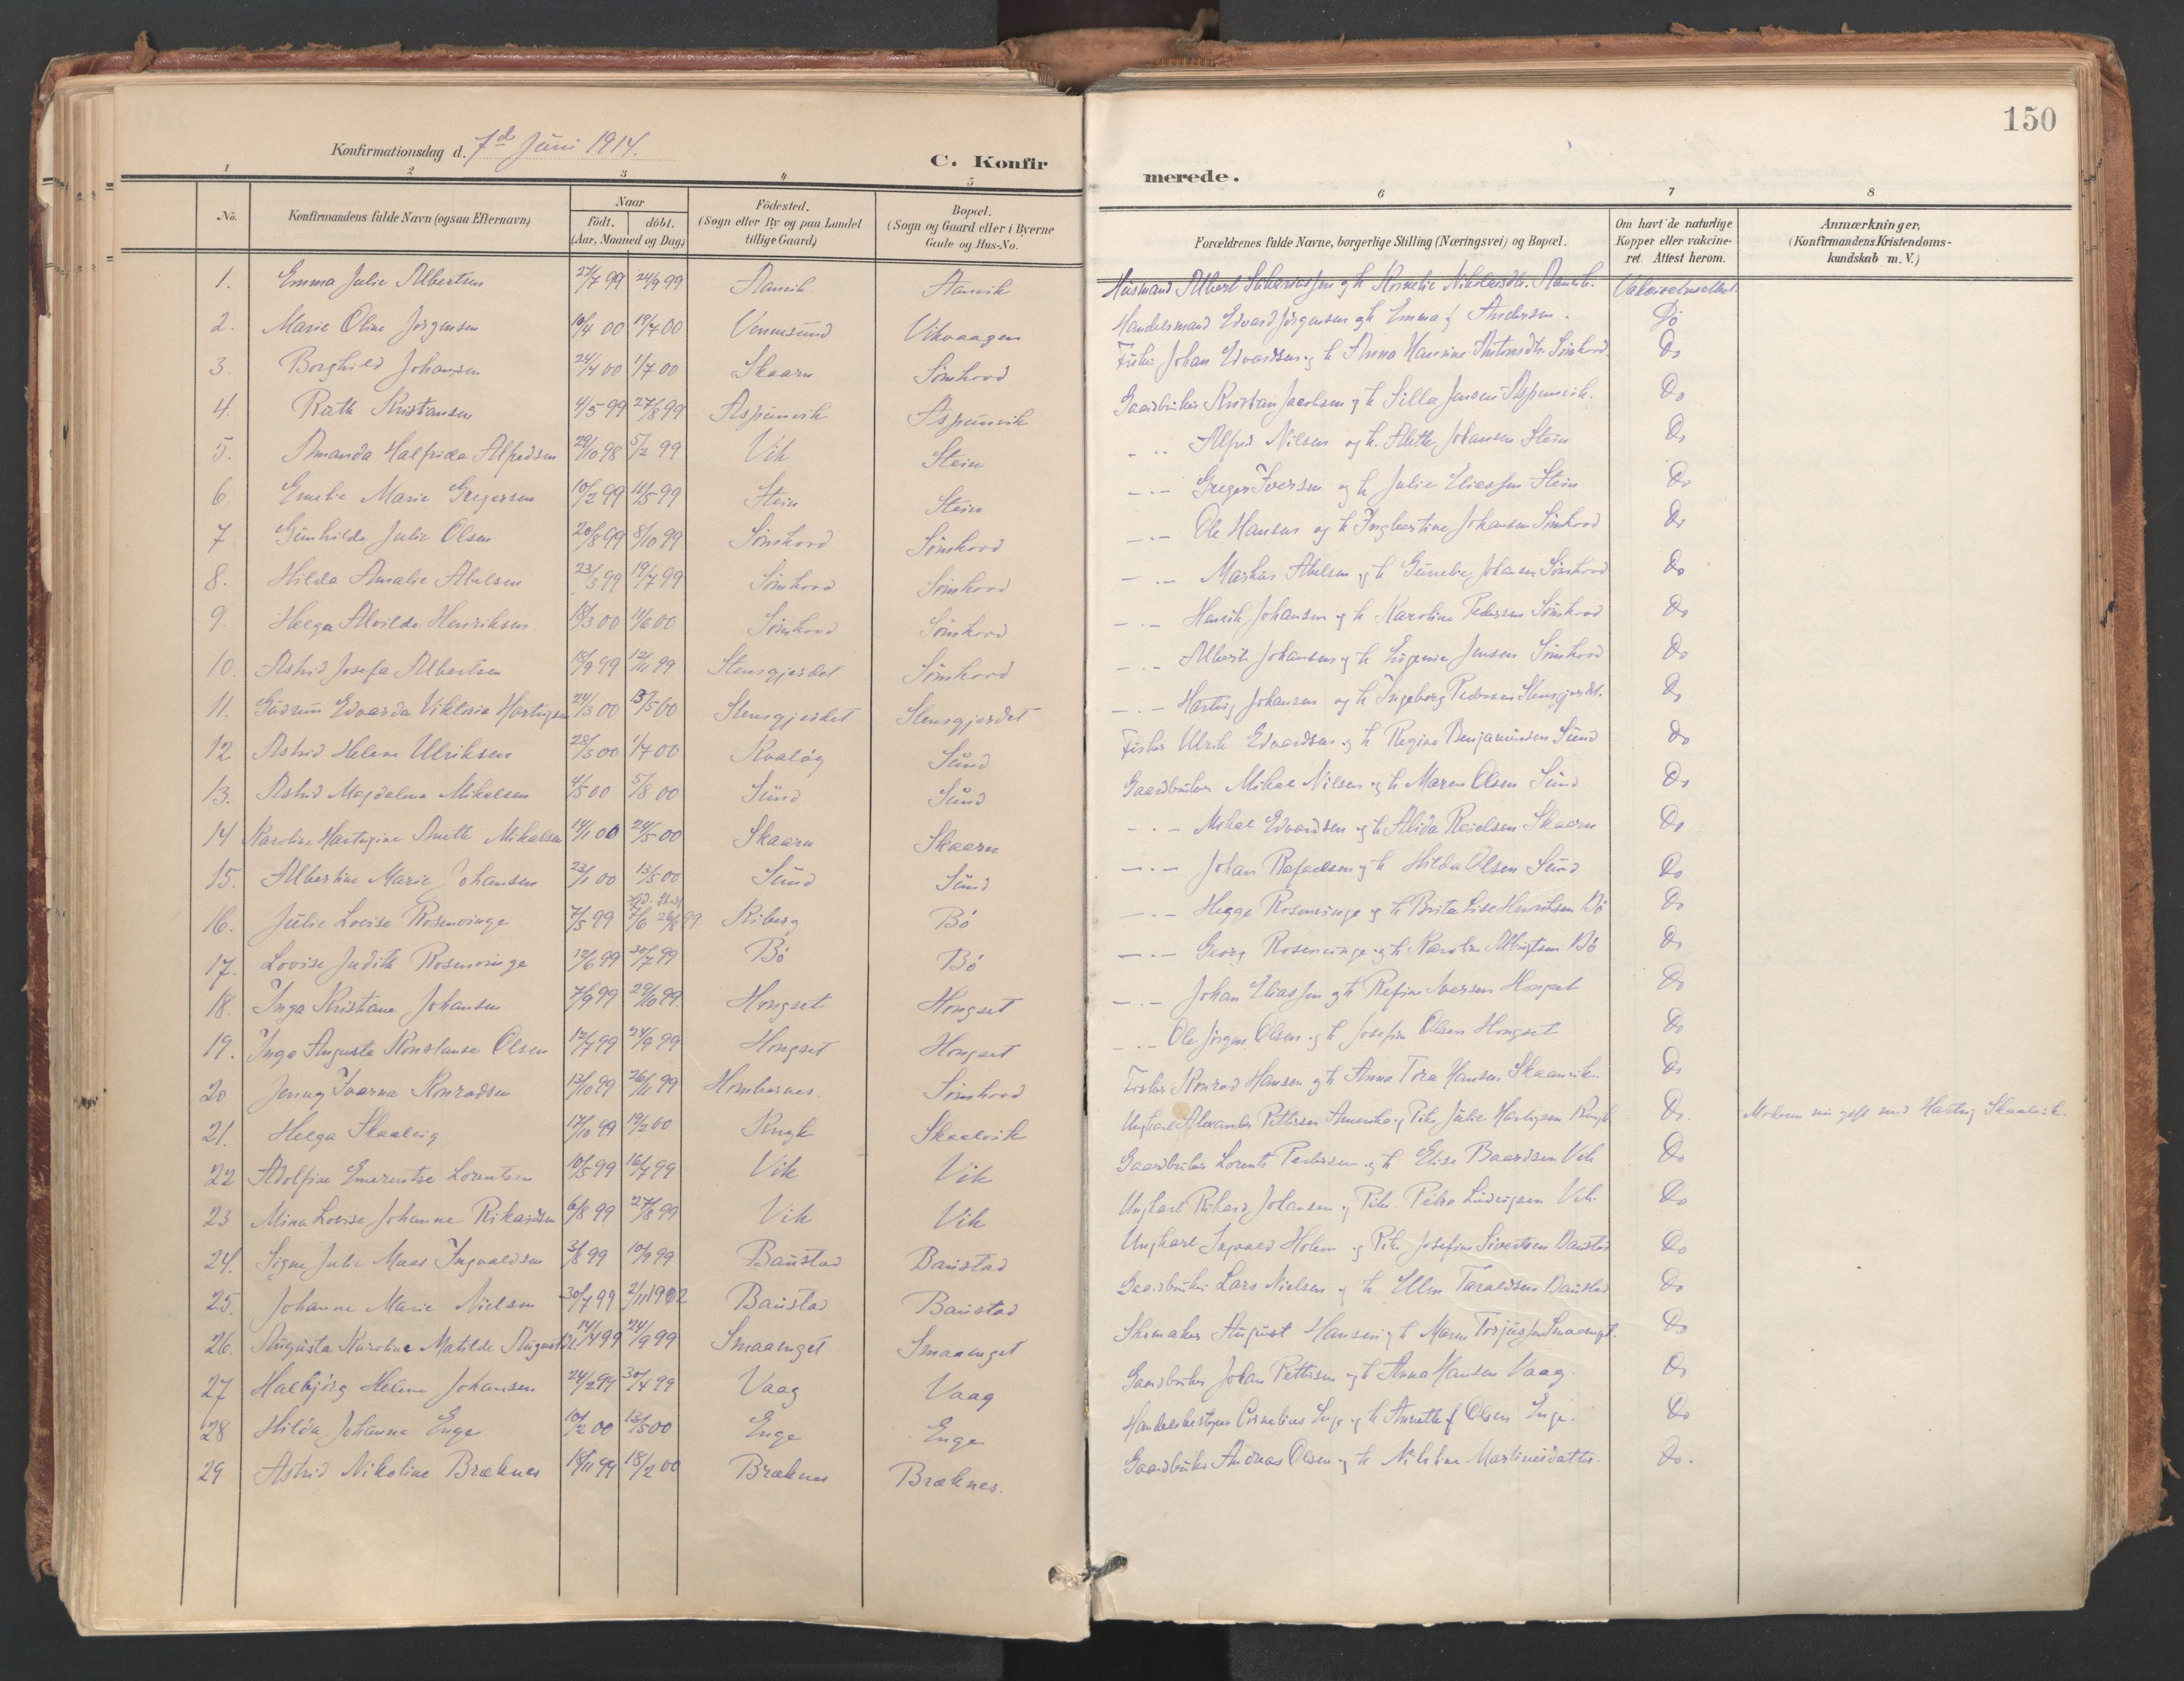 150
Konfirmationsdag d. 7de Juni 1914.
C. Konfir
merede.
1 2 3 4 5 6 7 8
No.
Konfirmandens fulde Navn (ogsaa Efternavn)
Naar
födt. döbt.
(Aar, Maaned og Dag)
Födested.
(Sogn eller By og paa Landet
tillige Gaard)
Bopæl.
(Sogn og Gaard eller i Byerne
Gade og Hus-No.
Forældrenes fulde Navne, borgerlige Stilling (Næringsvei) og Bopæl.
Om havt de naturlige
Kopper eller vakcine-
ret. Attest herom.
Anmærkninger,
(Konfirmandens Kristendoms-
kundskab m. V.)
1. Emma Julie Albertsen 27/7 99 24/9 99 Aanvik Aanvik Husmand Albert og h. Kornelie Nikolaisdtr. Aanvik.
2. Marie Oline Jørgensen 10/4 00 19/7 00 Vennesund Vikvaagen Handelsmand Edvard Jørgensen og h Emma f Andersen. Do
3. Borghild Johansen 24/4 00 1/7 00 Skaarn Sömhovd Fisker Johan Edvardsen og h Anna Hansine Antonsdtr. Sömhovd Do
4. Ruth Kristiansen 4/5 99 27/8 99 Aspünvik Aspünvik Gaardbruker Kristian Jacobsen og h Silla Jensen Aspünvik. Do
5. Amanda Halfrida Alfredsen 29/10 98 5/2 99 Vik Stein - " - Alfred Nilsen og h. Alette Johansen Stein Do
6. Emelie Marie Gregersen 10/2 99 11/5 99 Stein Stein - " - Greger Iversen og h Julie Eliassen Stein Do
7. Gunhilde Julie Olsen 20/8 99 8/10 99 Sömhovd Sömhovd - " - Ole Hansen og h Ingbertine Johansen Sömhovd Do
8. Hilda Amalie Abelsen 23/3 99 19/7 99 Sömhovd Sömhovd - " - Markus Abelsen og h Gunelie Johansen Sömhovd Do
9. Helga Alvilde Henriksen 18/3 00 11/6 00 Sömhovd Sömhovd - " - Henrik Johansen og h Karoline Pedersen Sömhovd Do
10. Astrid Josefa Albertsen 18/9 99 12/11 99 Stensgjerdet Sömhovd - " - Albert Johansen og h Eugenie Jensen Sömhovd Do
11. Gudrun Edvarda Viktoria Hartvigsen 24/3 00 13/5 00 Stensgjerdet Stensgjerdet - " - Hartvig Johansen og h Ingeborg Pedersen Stensgjerdet. Do
12 Astrid Helene Ulriksen 28/3 00 1/7 00 Kvalög Sund Fisker Ulrik Edvardsen og h Regine Benjaminsen Sund Do
13. Astrid Magdalena Mikalsen 4/5 00 5/8 00 Sund Sund Gaardbruker Mikal Nilsen og h Maren Olsen Sund Do
14 Karoline Hartvigine Anette Mikalsen 14/1 00 24/5 00 Skaarn Skaarn - " - Mikal Edvardsen og h Alida Skaarn Do
15. Albertine Marie Johansen 23/1 00 13/5 00 Sund Sund - " - Johan Rafaelsen og h Hilda Olsen Sund Do
16. Julie Lovise Rosenvinge 7/5 99 7/6 26/8 99 Riberg Bö - " - Hegge Rosenvinge og h Brita Lise Henriksen Bö Do
17. Lovise Judith Rosenvinge 12/6 99 30/7 99 Bö Bö - " - Georg Rosenvinge og h Karoline Albrigtsen Bö Do
18. Inga Kristiane Johansen 7/9 99 29/10 99. Hongset Hongset - " - Johan Eliassen og h Refine Iversen Hongset Do
19. Inga Augusta Konstanse Olsen 12/7 99 24/9 99 Hongset Hongset - " - Ole Jörgen Olsen og h Josefine Olsen Hongset Do
20 Jenny Ivarna Konradsen 13/10 99 26/11 99 Homhornes. Sömhovd Fisker Konrad Hansen og h Anna Tora Hansen Skaanvik. Do
21. Helga Skaalvig 17/10 99 19/2 00 Ryngh Skaalvik Ungkarl Alexander Pettersen Amerika og Pike Julie Hartvigsen Do. Moderen nu gift med Hartvig Skaalvik.
22 Adolfine Emerentse Lorentsen 10/5 99 16/7 99 Vik Vik Gaardbruker Lorents Pedersen og h Elise Baardsen Vik Do
23 Mina Lovise Johanne Rikardsen 6/8 99 27/8 99 Vik Vik Ungkarl Rikard Johansen og Pike Petra Ludvigsen Vik. Do
24. Signe Julie Maas Ingvaldsen 3/8 99 10/9 99 Baustad Baustad Ungkarl Ingvald Holm og Pike Josefine Sivertsen Baustad Do
25. Johanne Marie Nielsen 30/7 99 2/11 1902 Baustad Baustad Gaardbruker Lars Nielsen og h Ellen Taraldsen Baustad Do
26. Augusta Karoline Matilde Augustdtr. 14/4 99 24/9 99 Smaaenget Smaaenget Skomaker August Hansen og h Maren Torjussen Smaaenget. Do
27 Halbjörg Helene Johansen 24/2 99 30/4 99 Vaag Vaag Gaardbruker Johan Pettersen og h Anna Hansen Vaag. Do
28 Hilda Johanna Enge 10/2 00 13/5 00 Enge Enge Handelsbestyrer Cornelius Enge og h Anette f Olsen Enge. Do
29 Astrid Nikoline Bræknes 18/11 99 18/2 00 Bræknes Bræknes. Gaardbruker Andreas Olsen og h Nikoline Martinusdatter. Do.